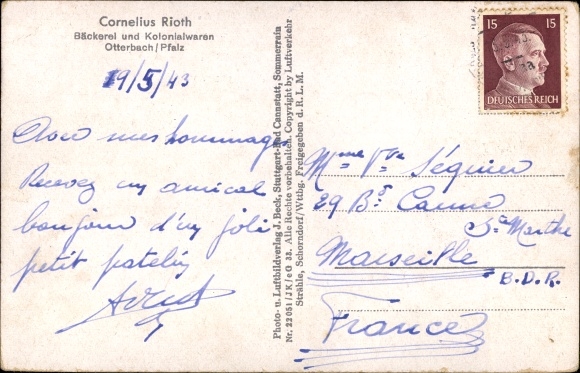 Cornelius Rioth
Bäckerei und Kolonialwaren
Otterbach/Pfalz
19/5/43
Avec mes hommages
Recevez un amical
bonjour d'un joli
petit patelin
Photo- u. Luftbildverlag J. Beck, Stuttgart-Bad Cannstatt, Sommerrain
Nr. 22051/JK/eG 33. Alle Rechte vorbehalten. Copyright by Luftverkehr
Strähle, Schorndorf/Wttbg. Freigegeben d. R. L. M.
15 15
DEUTSCHES REICH
Mme Vve Séguier
29 Bd
Ste Marthe
Marseille
B.D.R.
France